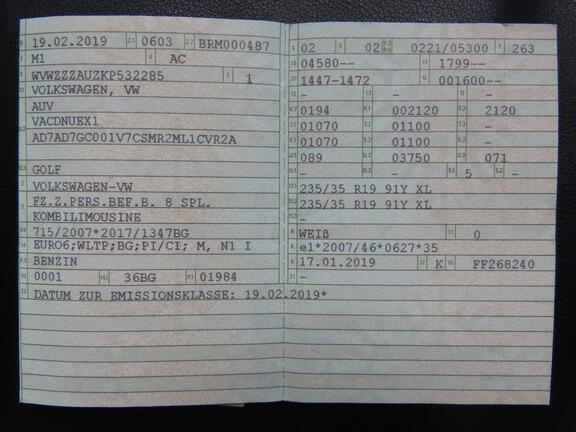 19.02.2019 2.1 0603 2.2 BRM000487
M1 4 AC
WVWZZZAUZKP532285 3 1
VOLKSWAGEN, VW
AUV
VACDNUEX1
AD7AD7GC001V7CSMR2ML1CVR2A
GOLF
VOLKSWAGEN-VW
FZ.Z.PERS.BEF.B. 8 SPL.
KOMBILIMOUSINE
715/2007*2017/1347BG
EURO6;WLTP;BG;PI/CI; M, N1 I
BENZIN
0001 36BG 01984
DATUM ZUR EMISSIONSKLASSE: 19.02.2019*
L 02 9 02 0221/05300 T 263
04580-- 1799--
1447-1472 G 001600--
- - Q -
0194 F.1 002120 F.2 2120
01070 01100 -
01070 01100 -
089 U.2 03750 U.3 071
- - S.1 5 S.2 -
235/35 R19 91Y XL
235/35 R19 91Y XL
-
R WEIß 11 0
K e1*2007/46*0627*35
6 17.01.2019 17 K 16 FF268240
21 -